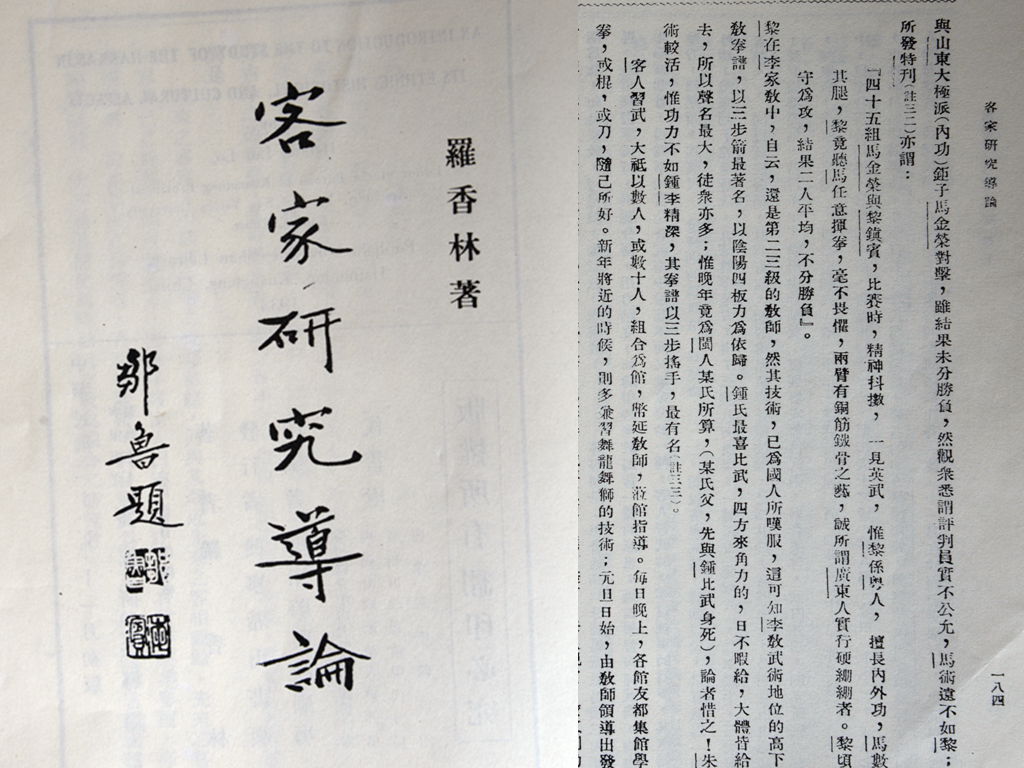 羅香林著
客家研究導論
鄒魯題
客家研究導論
一八四
與山東大極派(內功)鉅子馬金榮對擊,雖結果未分勝負,然觀衆悉謂評判員實不公允,馬術遠不如黎;
所發特刊(註三二)亦謂:
『四十五組馬金榮與黎鎮賓,比賽時,精神抖擻,一見英武,惟黎係粵人,擅長內外功,馬數
其腿,黎竟聽馬任意揮拳,毫不畏懼,兩臂有銅筋鐵骨之藝,誠所謂廣東人實行硬綳綳者。黎頃
守爲攻,結果二人平均,不分勝負』。
黎在李家教中,自云,還是第二三級的教師,然其技術,已爲國人所嘆服,這可知李教武術地位的高下
教拳譜,以三步箭最著名,以陰陽四板力爲依歸。鍾氏最喜比武,四方來角力的,日不暇給,大體皆給
去,所以聲名最大,徒衆亦多;惟晚年竟爲閩人某氏所算,(某氏父,先與鍾比武身死),論者惜之!朱
術較活,惟功力不如鍾李精深,其拳譜以三步搖手,最有名(註三三)。
客人習武,大祗以數人,或數十人,組合爲館,幣延教師,蒞館指導。每日晚上,各館友都集館學
拳,或棍,或刀,隨己所好。新年將近的時候,則多兼習舞龍舞獅的技術;元旦日始,由教師領導出發